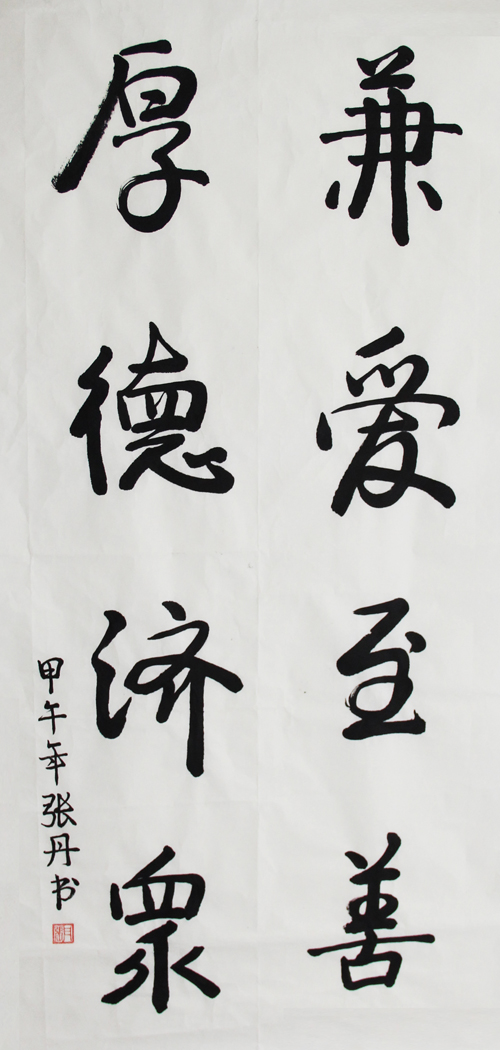 兼爱至善
厚德济眾
甲午年张丹书